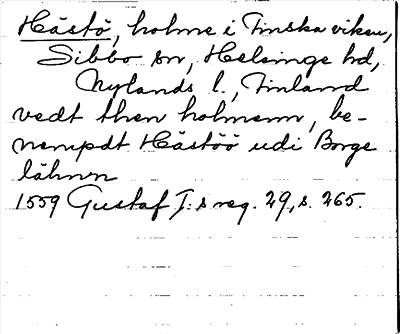 Hästö, holme i Finska viken,
Sibbo sn, Helsinge hd,
Nylands l., Finland
vedt then holmenn, be-
nempdt Hästöö udi Borge
lähnn
1559 Gustaf I:s reg. 29, s. 265.